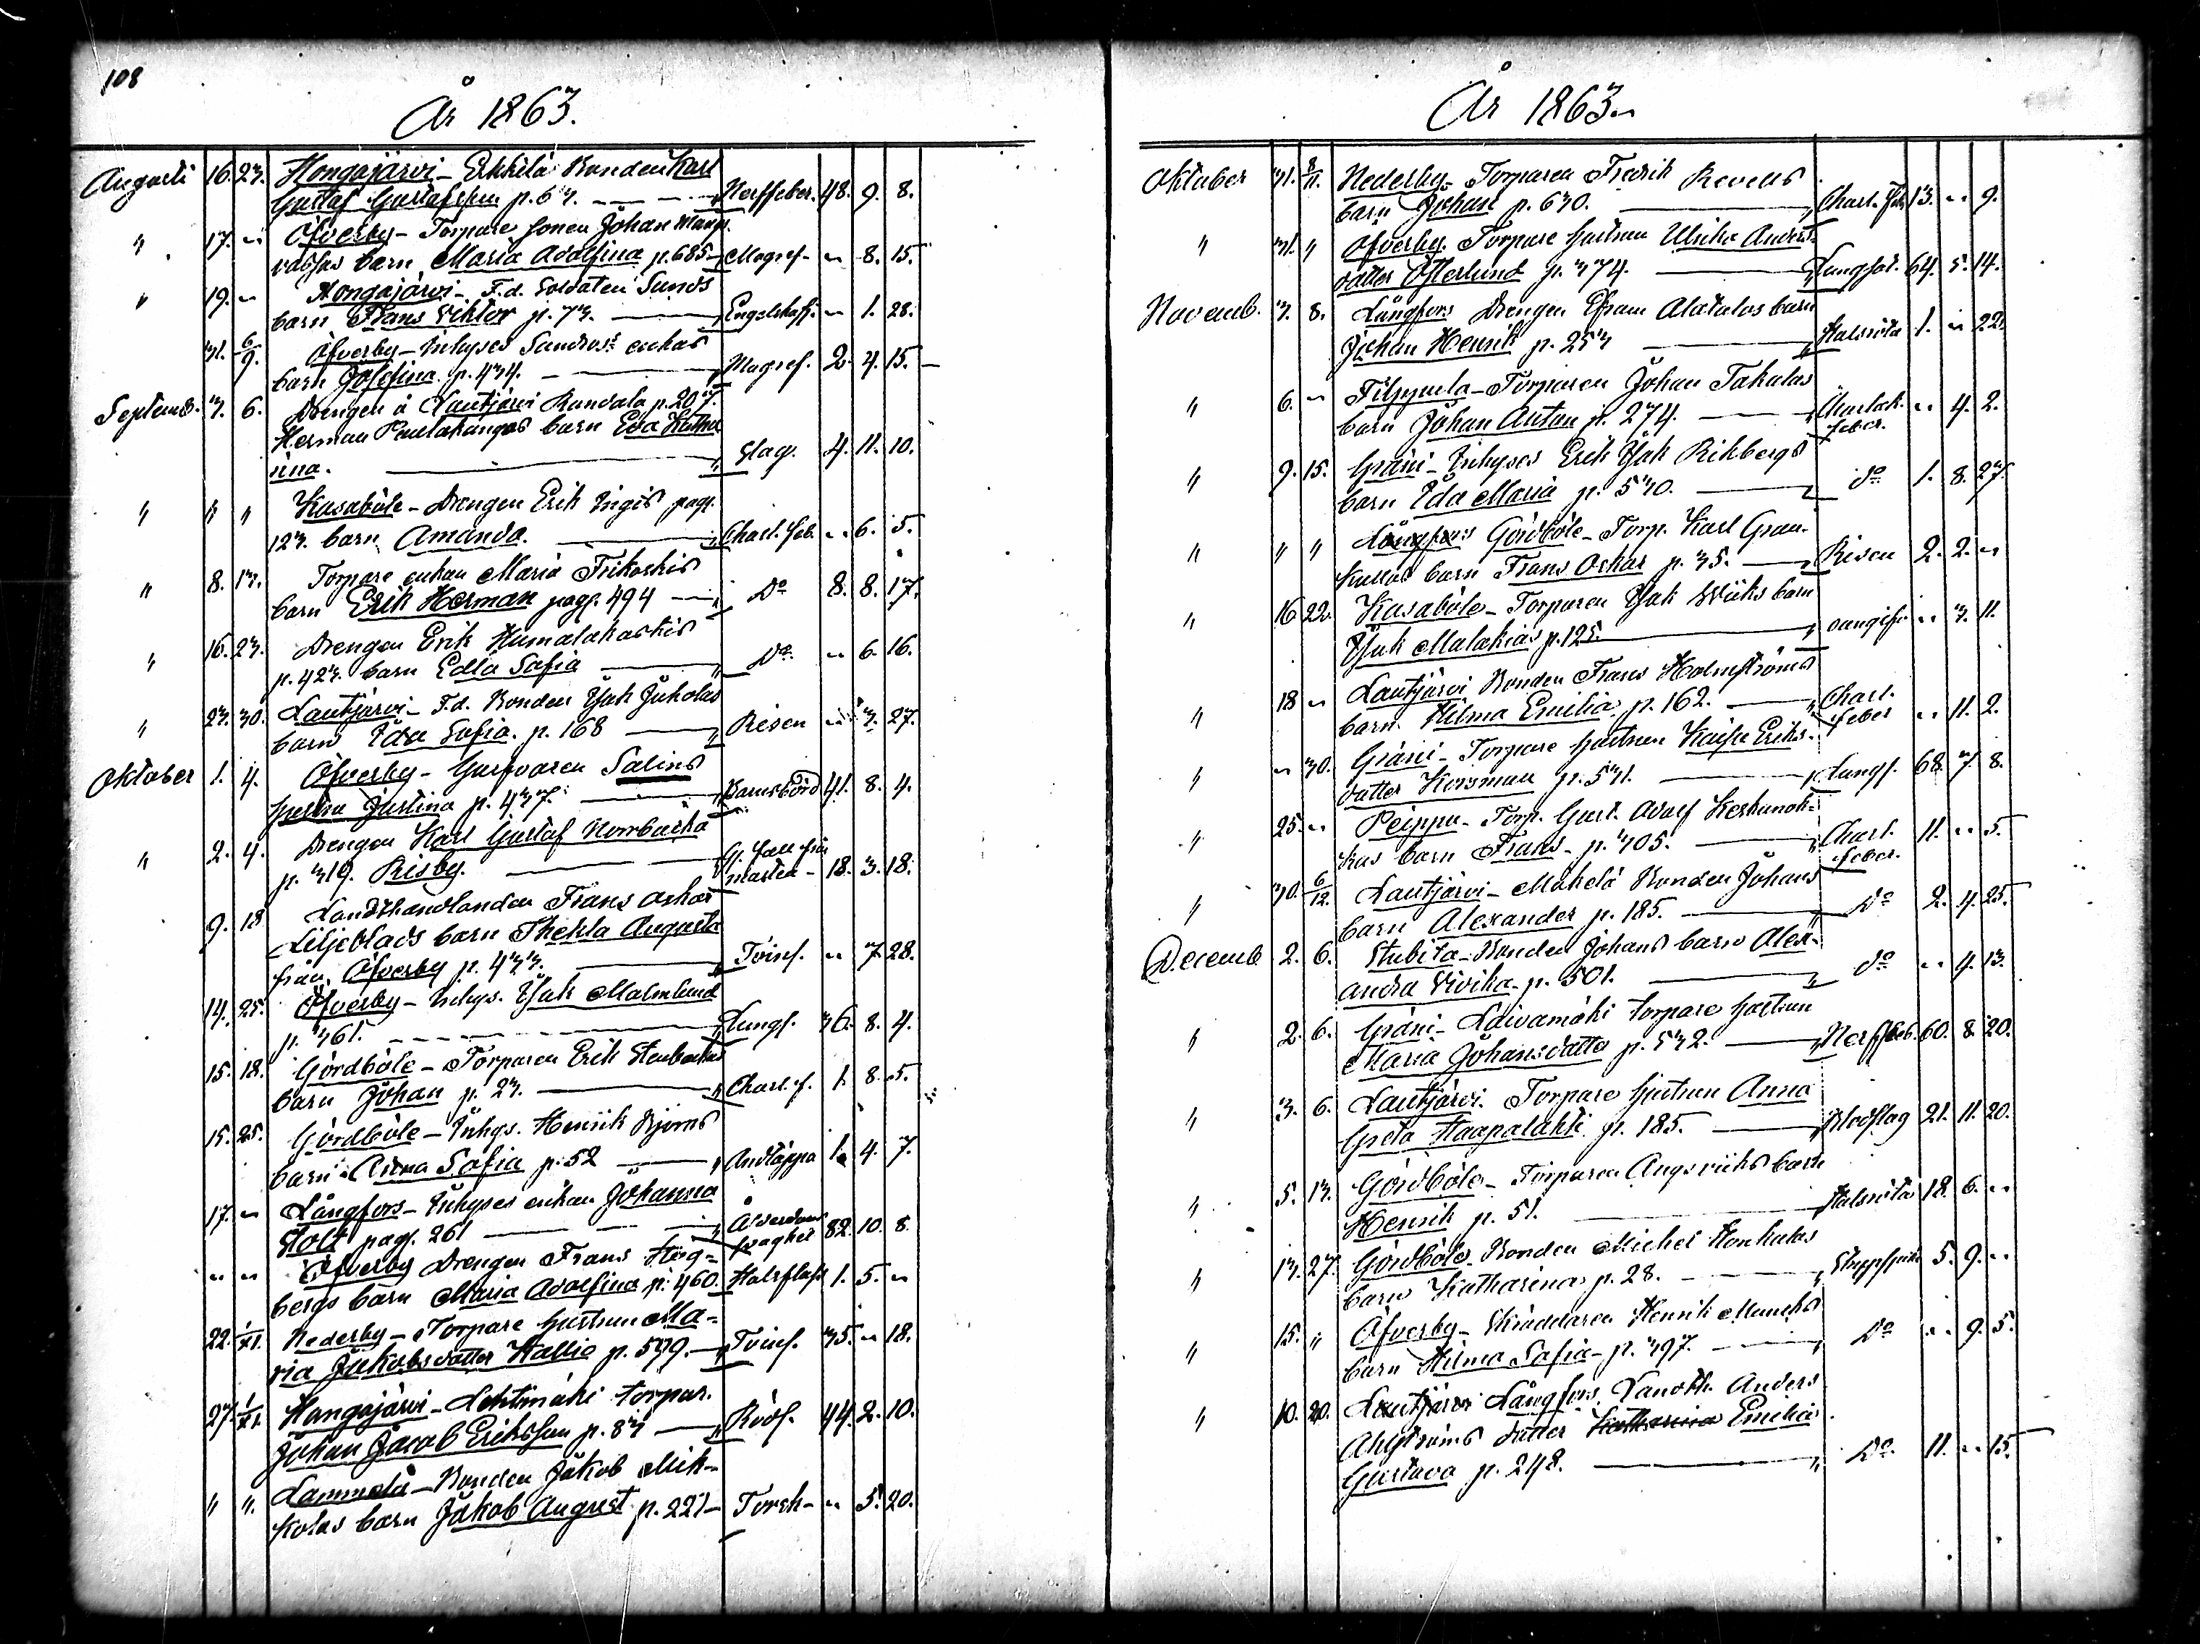 108
År 1863.
Augusti 16. 23. Hongajärvi - Erkkilä Bonden Karl
Gustaf Gustafsson p. 63. Nerffeber. 48. 9. 8.
" 17. " Öfverby - Torpare sonen Johan Mangs
barn Maria Adolfina p. 685 Magref. " 8. 15.
" 19. " Hongajärvi - F.d. Soldaten Sunds
barn Frans Viktor p. 73. Engelskasj. " 1. 28.
31. 6/9. Öfverby - Inhyses Sandros enkas
barn Josefina p. 434. Magref. 2. 4. 15.
Septemb. 3. 6. Drengen å Lautjärvi Randala p. 207.
Herman Pentakangas barn Eva Katha
rina. Slag. 4. 11. 10.
" " " Kasaböle - Drengen Erik Ingis pag.
123. barn Amanda. Charl. feb. " 6. 5.
" 8. 13. Torpare enkan Maria Trikoskis
barn Erik Herman pag. 494 Do 8. 8. 17.
" 16. 23. Drengen Erik Humalakoskis
p. 423. barn Edla Sofia Do " 6. 16.
" 23. 30. Lautjärvi - F.d. Bonden Isak Jukolas
barn Ida Sofia. p. 168 Risen " 3. 27.
Oktober 1. 4. Öfverby - Garfvaren Salins
hustru Justina p. 437. Barnsbörd 41. 8. 4.
" 2. 4. Drengen Karl Gustaf Norrbacka
p. 319. Risby. fall från
masten - 18. 3. 18.
9. 18 Landthandlanden Frans Oskar
Liljeblads barn Thekla Augusta
från Öfverby p. 433. Tvinf. " 7. 28.
14. 25. Öfverby - Inhys. Isak Malmlund
p. 361. Lungf. 36. 8. 4.
15. 18. Gördböle - Torparen Erik Stenbackas
barn Johan p. 23. Charl. f. 1. 8. 5.
15. 25. Gördböle - Inhys. Henrik Björns
barn Anna Sofia p. 52 Andtäppa 1. 4. 7.
17. " Långfors - Inhyses enkan Johanna
Stolt pag. 261 Ålderdoms
svaghet 82. 10. 8.
" " Öfverby Drengen Frans Hög=
bergs barn Maria Adolfina p. 460. Halsfluss 1. 5. "
22. 1/XI. Nederby - Torpare hustrun Ma=
ria Jakobsdotter Kallio p. 599. Tvinf. 35. " 18.
27. 1/XI. Hongajärvi - Lehtimäki torpar.
Johan Jacob Eriksson p. 83 Rödf. 44. 2. 10.
" " Lammela - Bonden Jakob Mik-
kolas barn Jakob August p. 221 Torsk - " 5. 20.
År 1863.
Oktober 31. 8/11. Nederby - Torparen Fredrik Revells
barn Johan p. 630. Charl. feb. 13. " 9.
" 31. " Öfverby. Torpare hustrun Ulrika Anders-
dotter Österlund p. 374. Lungsot. 64. 5. 14.
Novemb. 3. 8. Långfors Drengen Efram Alatalos barn
Johan Henrik p. 253 Halsröta 1. " 22.
" 6. " Filppula - Torparen Johan Takalas
barn Johan Anton p. 274. Charlak.
feber. " 4. 2.
" 9. 15. Gräni - Inhyses Erik Isak Rikbergs
barn Ida Maria p. 530. do 1. 8. 27.
" " " Långfors Gördböle - Torp. Karl Gran-
kullas barn Frans Oskar p. 35. Risen 2. 2. "
" 16 22. Kasaböle - Torparen Isak Wiiks barn
Isak Malakias p. 125. oangifv. " 3. 11.
" 18 " Lautjärvi Bonden Frans Holmströms
barn Hilma Emilia p. 162. Charl.
feber " 11. 2.
" " 30. Gräni - Torpare hustrun Kaisa Eriks-
dotter Korsman p. 531. Lungf. 68. 7. 8.
" 25. " Peippu - Torp. Gust. Adolf Keskinok-
kas barn Frans - p. 305. Charl.
feber. 11. " 5.
" 30. 6/12. Lautjärvi - Mäkelä Bonden Johans
barn Alexander p. 185. Do 2. 4. 25.
Decemb 2. 6. Stubila - Bonden Johans barn Alex-
andra Vivika p. 501. do " 4. 13.
" 2. 6. Gräni - Laivamäki torpare hustrun
Maria Johansdotter p. 532. Nerffeb. 60. 8. 20.
" 3. 6. Lautjärvi. Torpare hustrun Anna
Greta Haapalahti p. 185. Blodslag 21. 11. 20.
" 5. 13. Gördböle - Torparen Ångsviiks barn
Henrik p. 51. Halsröta 18. 6. "
" 13. 27. Gördböle Bonden Michel Honkalas
barn Katharina p. 28. Struppsjuka 5. 9. "
" 15. " Öfverby - Skräddaren Henrik Muncks
barn Hilma Sofia - p. 397. Do " 9. 5.
" 10. 20. Lautjärvi Långfors Vanótk. Anders
Ahlströms dotter Katharina Emilia
Gustava p. 248. Do 11. " 15.